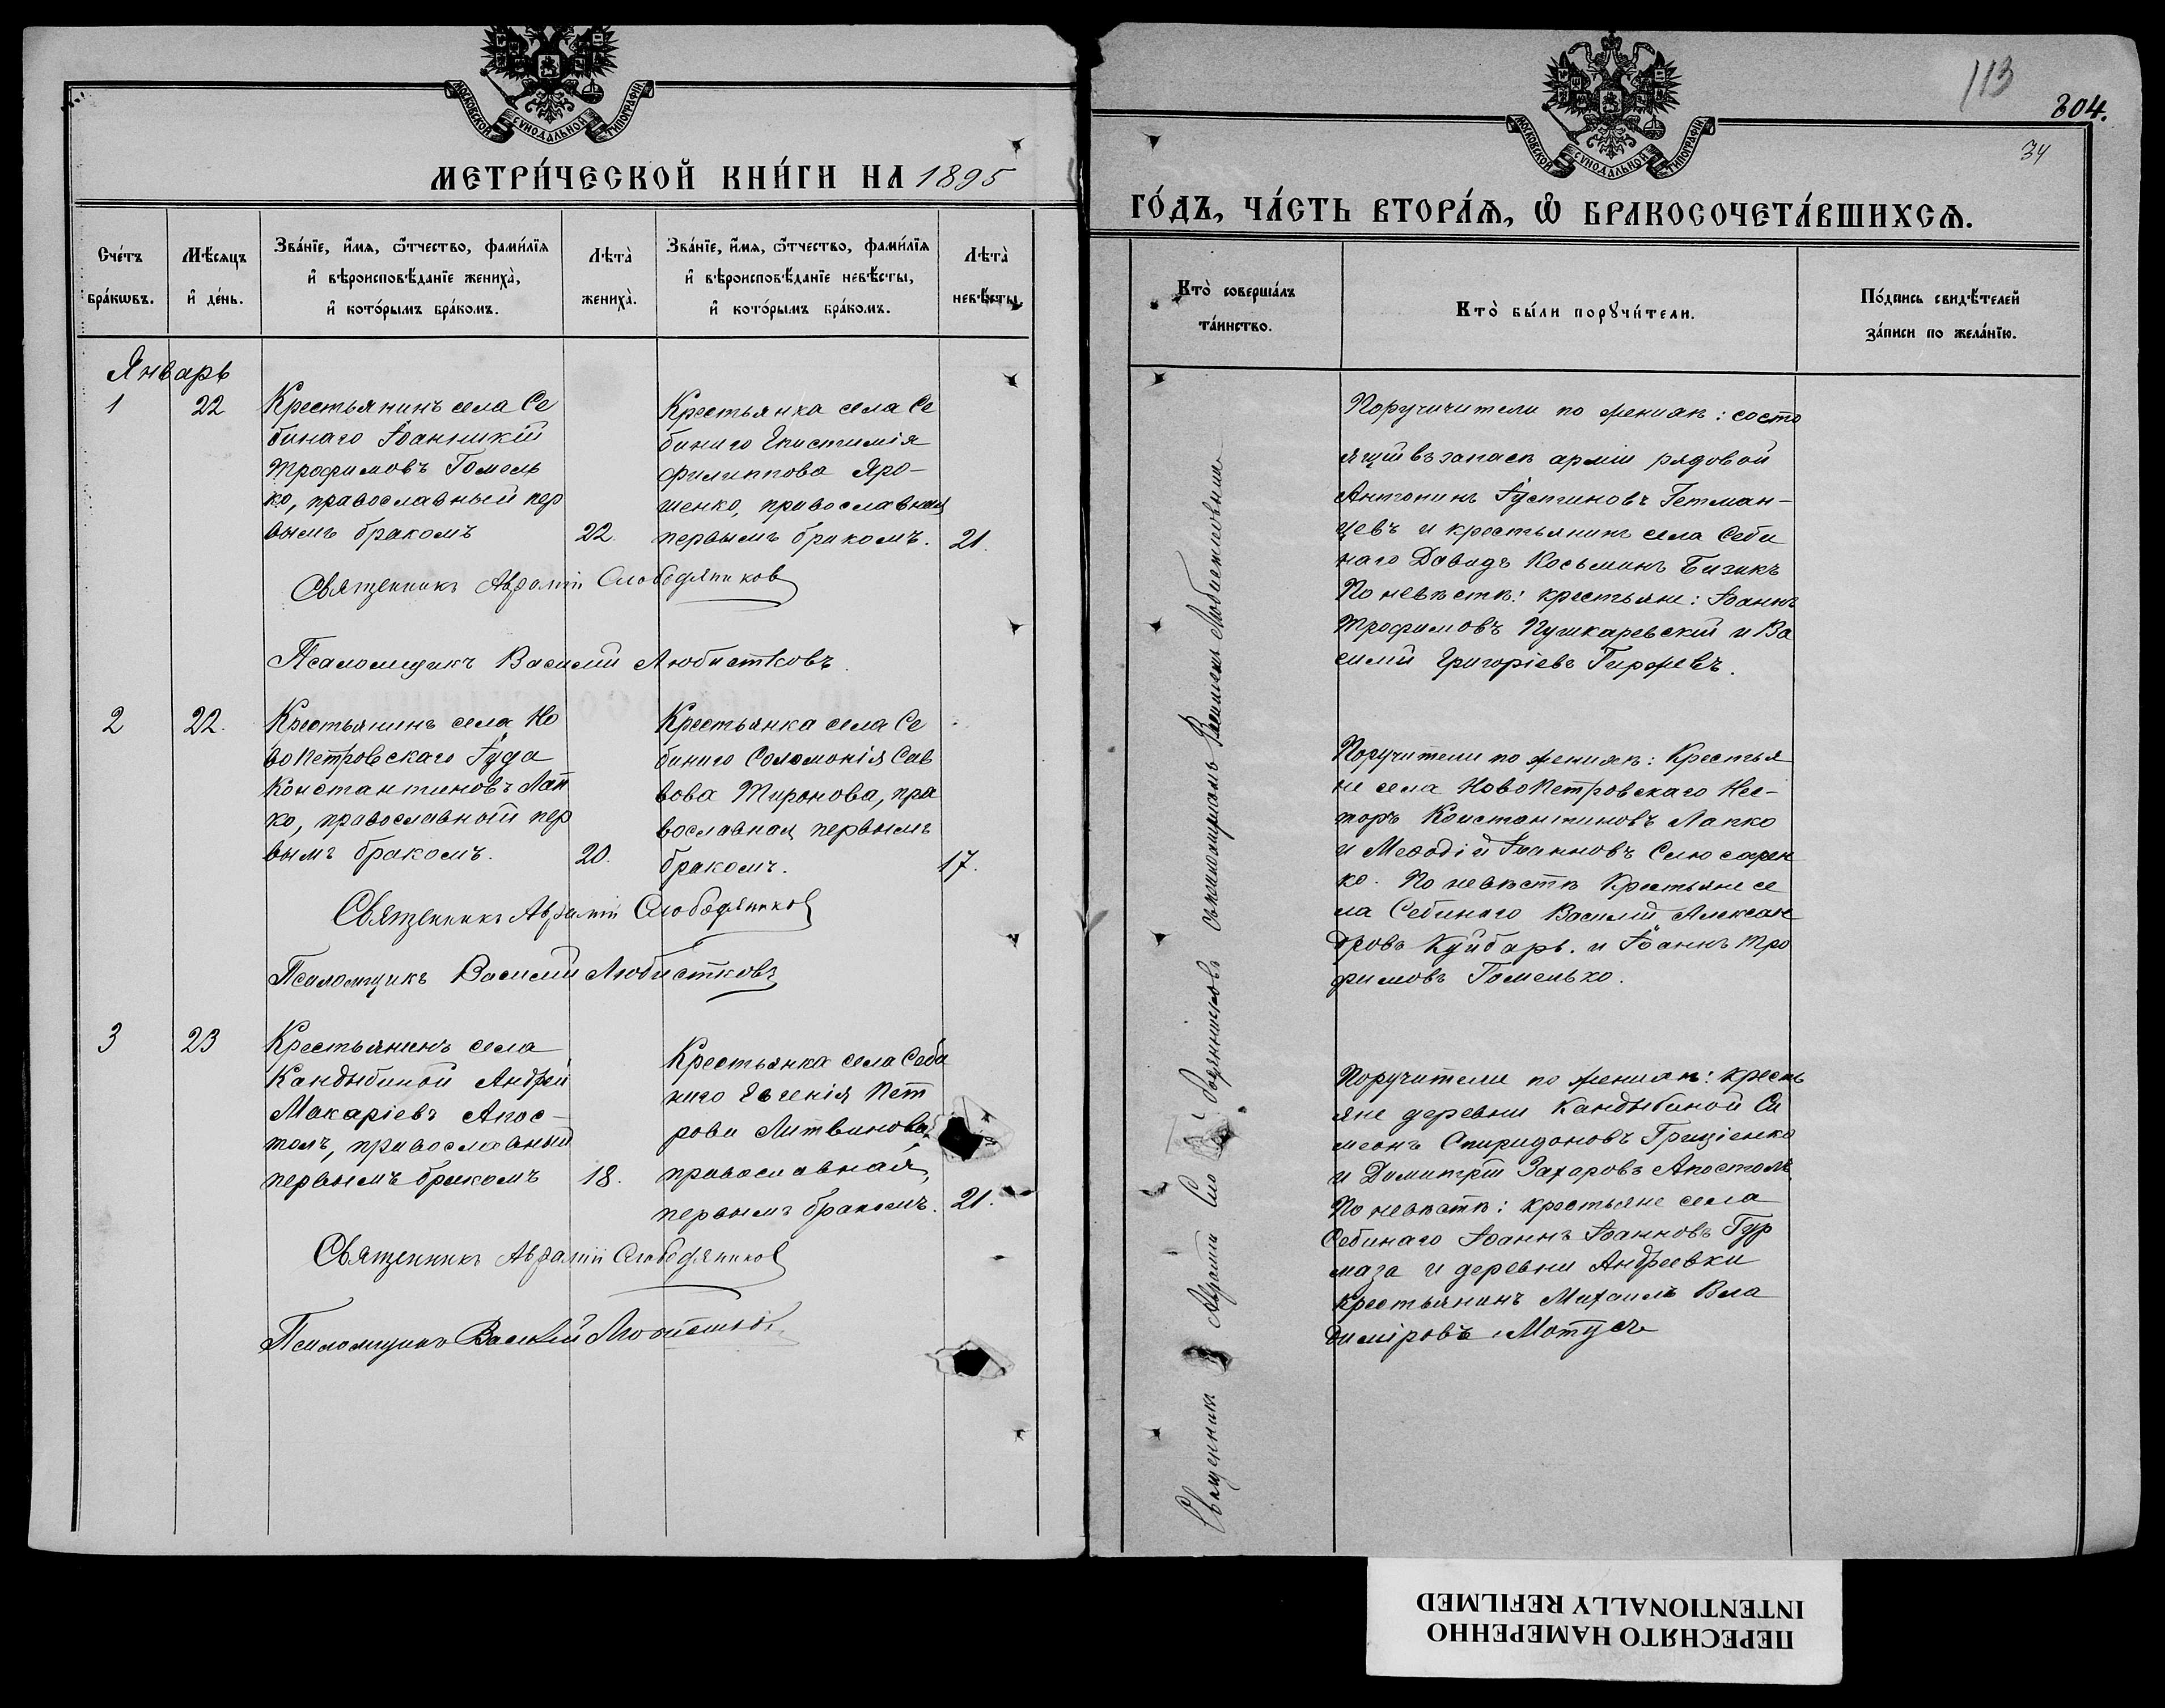 МОСКОВСКОЙ СѴНОДАЛЬНОЙ ТИПОГРАФІИ
МЕТРИ́ЧЕСКОЙ КНИ́ГИ НА 1895
Сче́тъ бра́кѡвъ.
Мѣ́сяцъ и҆ де́нь.
Зва́нїе, и҆́мѧ, ѻ҆́тчество, фами́лїѧ
и҆ вѣроисповѣ́данїе жениха̀,
и҆ кото́рымъ бра́комъ.
Лѣта̀ жениха̀.
Зва́нїе, и҆́мѧ, ѻ҆́тчество, фами́лїѧ
и҆ вѣроисповѣ́данїе невѣ́сты,
и҆ кото́рымъ бра́комъ.
Лѣта̀ невѣ́сты.
Январь
1
22
Крестьянинъ села Се
бинаго Іоанникій
Трофимовъ Гомель
ко, православный пер
вымъ бракомъ
22.
Крестьянка села Се
бинаго Епистимія
Филиппова Яро-
шенко, православная
первымъ бракомъ.
21.
Священникъ Аврамій Слободяников
Псаломщикъ Василій Любистковъ.
2
22.
Крестьянинъ села Но
воПетровскаго Іуда
Константиновъ Лап
ко, православный пер
вымъ бракомъ.
20.
Крестьянка села Се
бинаго Соломонія Сав
вова Миронова, пра
вославная первымъ
бракомъ.
17.
Священникъ Аврамій Слободяников
Псаломщикъ Василій Любистковъ
3
23
Крестьянинъ села
Кандыбиной Андрей
Макаріевъ Апос-
толъ, православный
первымъ бракомъ
18.
Крестьянка села Себи
наго Евгенія Пет
рова Литвинова,
православная,
первымъ бракомъ.
21.
Священникъ Аврамій Слободяников
Псаломщикъ Василій Любистков
МОСКОВСКОЙ СѴНОДАЛЬНОЙ ТИПОГРАФІИ
113
304.
34
ГО́ДЪ, ЧА́СТЬ ВТОРА́Ѧ, Ѽ БРАКОСОЧЕТА́ВШИХСѦ.
Кто̀ соверша́лъ
та́инство.
Кто̀ бы́ли порꙋчи́тели.
По́дпись свидѣ́телей
за́писи по жела́нїю.
Священникъ Аврамій Сло
бодянниковъ
Василіемъ Любистковымъ
Поручичители по женихѣ: состо
ящій въ запасѣ арміи рядовой
Антонинъ Іустиновъ Гетман-
цевъ и крестьянинъ села Себи
наго Давидъ Косьминъ Бизикъ
По невѣстѣ: крестьяне: Іоаннъ
Трофимовъ Пушкаревскій и Ва
силій Григоріевъ Гиржевъ.
Поручители по женихѣ: Крестья
не села НовоПетровскаго Нес-
торъ Константиновъ Лапко
и Меѳодій Іоанновъ Слюсарен
ко. По невѣстѣ Крестьяне се
ла Себинаго Василій Алексан
дровъ Куйбарь. и Іоаннъ Тро
фимовъ Гомелько.
Поручители по женихѣ: кресть
яне деревни Кандыбиной Си
меонъ Спиридоновъ Гриціенко
и Димитрій Захаровъ Апостолъ.
По невѣстѣ: крестьяне села
Себинаго Іоаннъ Іоанновъ Гур
маза и деревни Андреевки
крестьянинъ Михаилъ Вла
диміровъ Мотусъ
ПЕРЕСНЯТО НАМЕРЕННО
INTENTIONALLY REFILMED